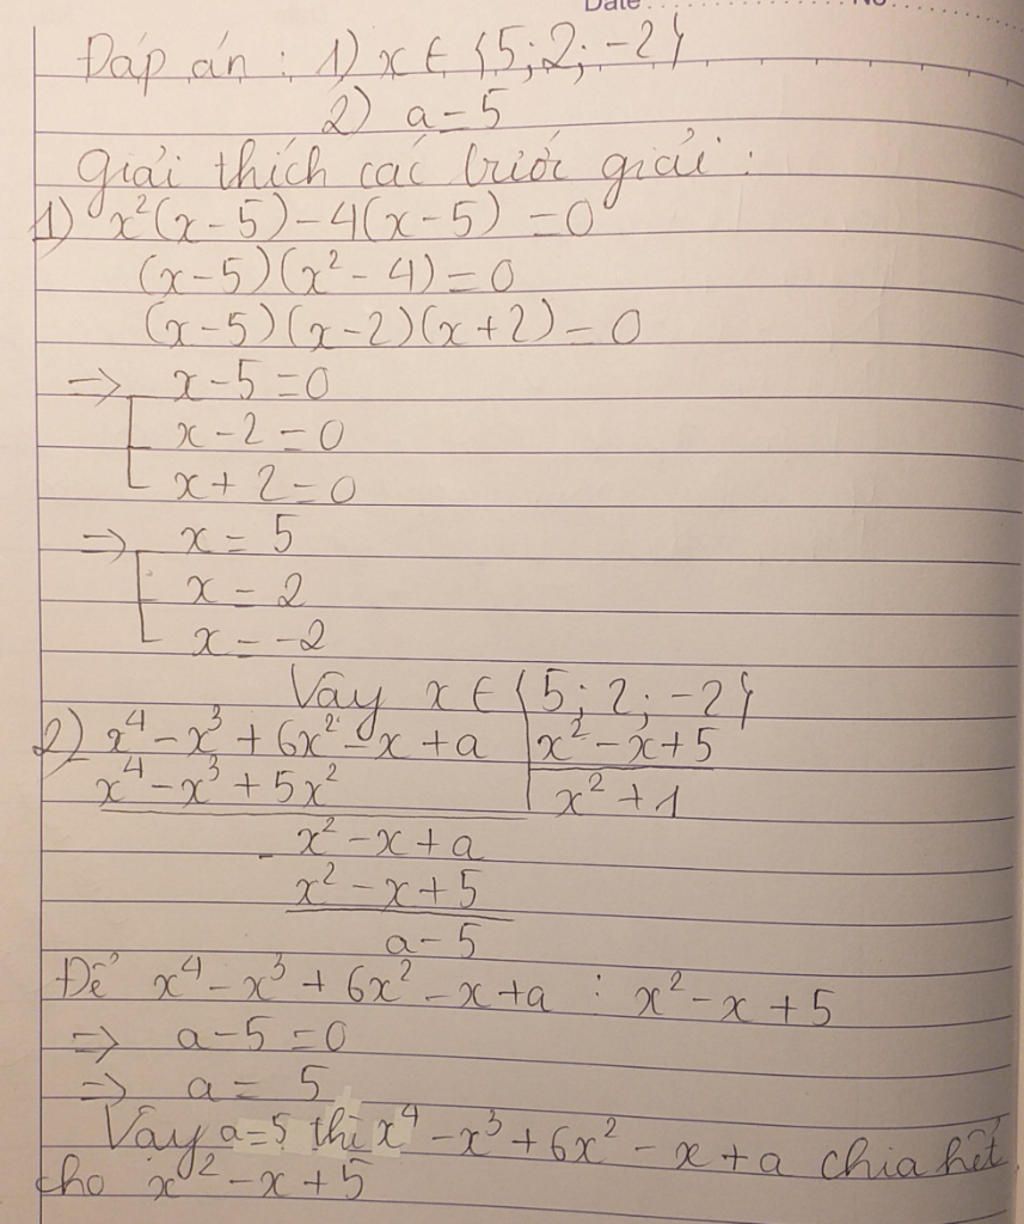 Date No
Đáp án : 1) x ∈ {5; 2; -2}
2) a = 5
Giải thích các bước giải :
1) x²(x - 5) - 4(x - 5) = 0
(x - 5)(x² - 4) = 0
(x - 5)(x - 2)(x + 2) = 0
=> x - 5 = 0
x - 2 = 0
x + 2 = 0
=> x = 5
x = 2
x = -2
Vậy x ∈ {5; 2; -2}
2) x⁴ - x³ + 6x² - x + a | x² - x + 5
x⁴ - x³ + 5x² | x² + 1
- x² - x + a
x² - x + 5
a - 5
Để x⁴ - x³ + 6x² - x + a ⋮ x² - x + 5
=> a - 5 = 0
=> a = 5
Vậy a = 5 thì x⁴ - x³ + 6x² - x + a chia hết
cho x² - x + 5